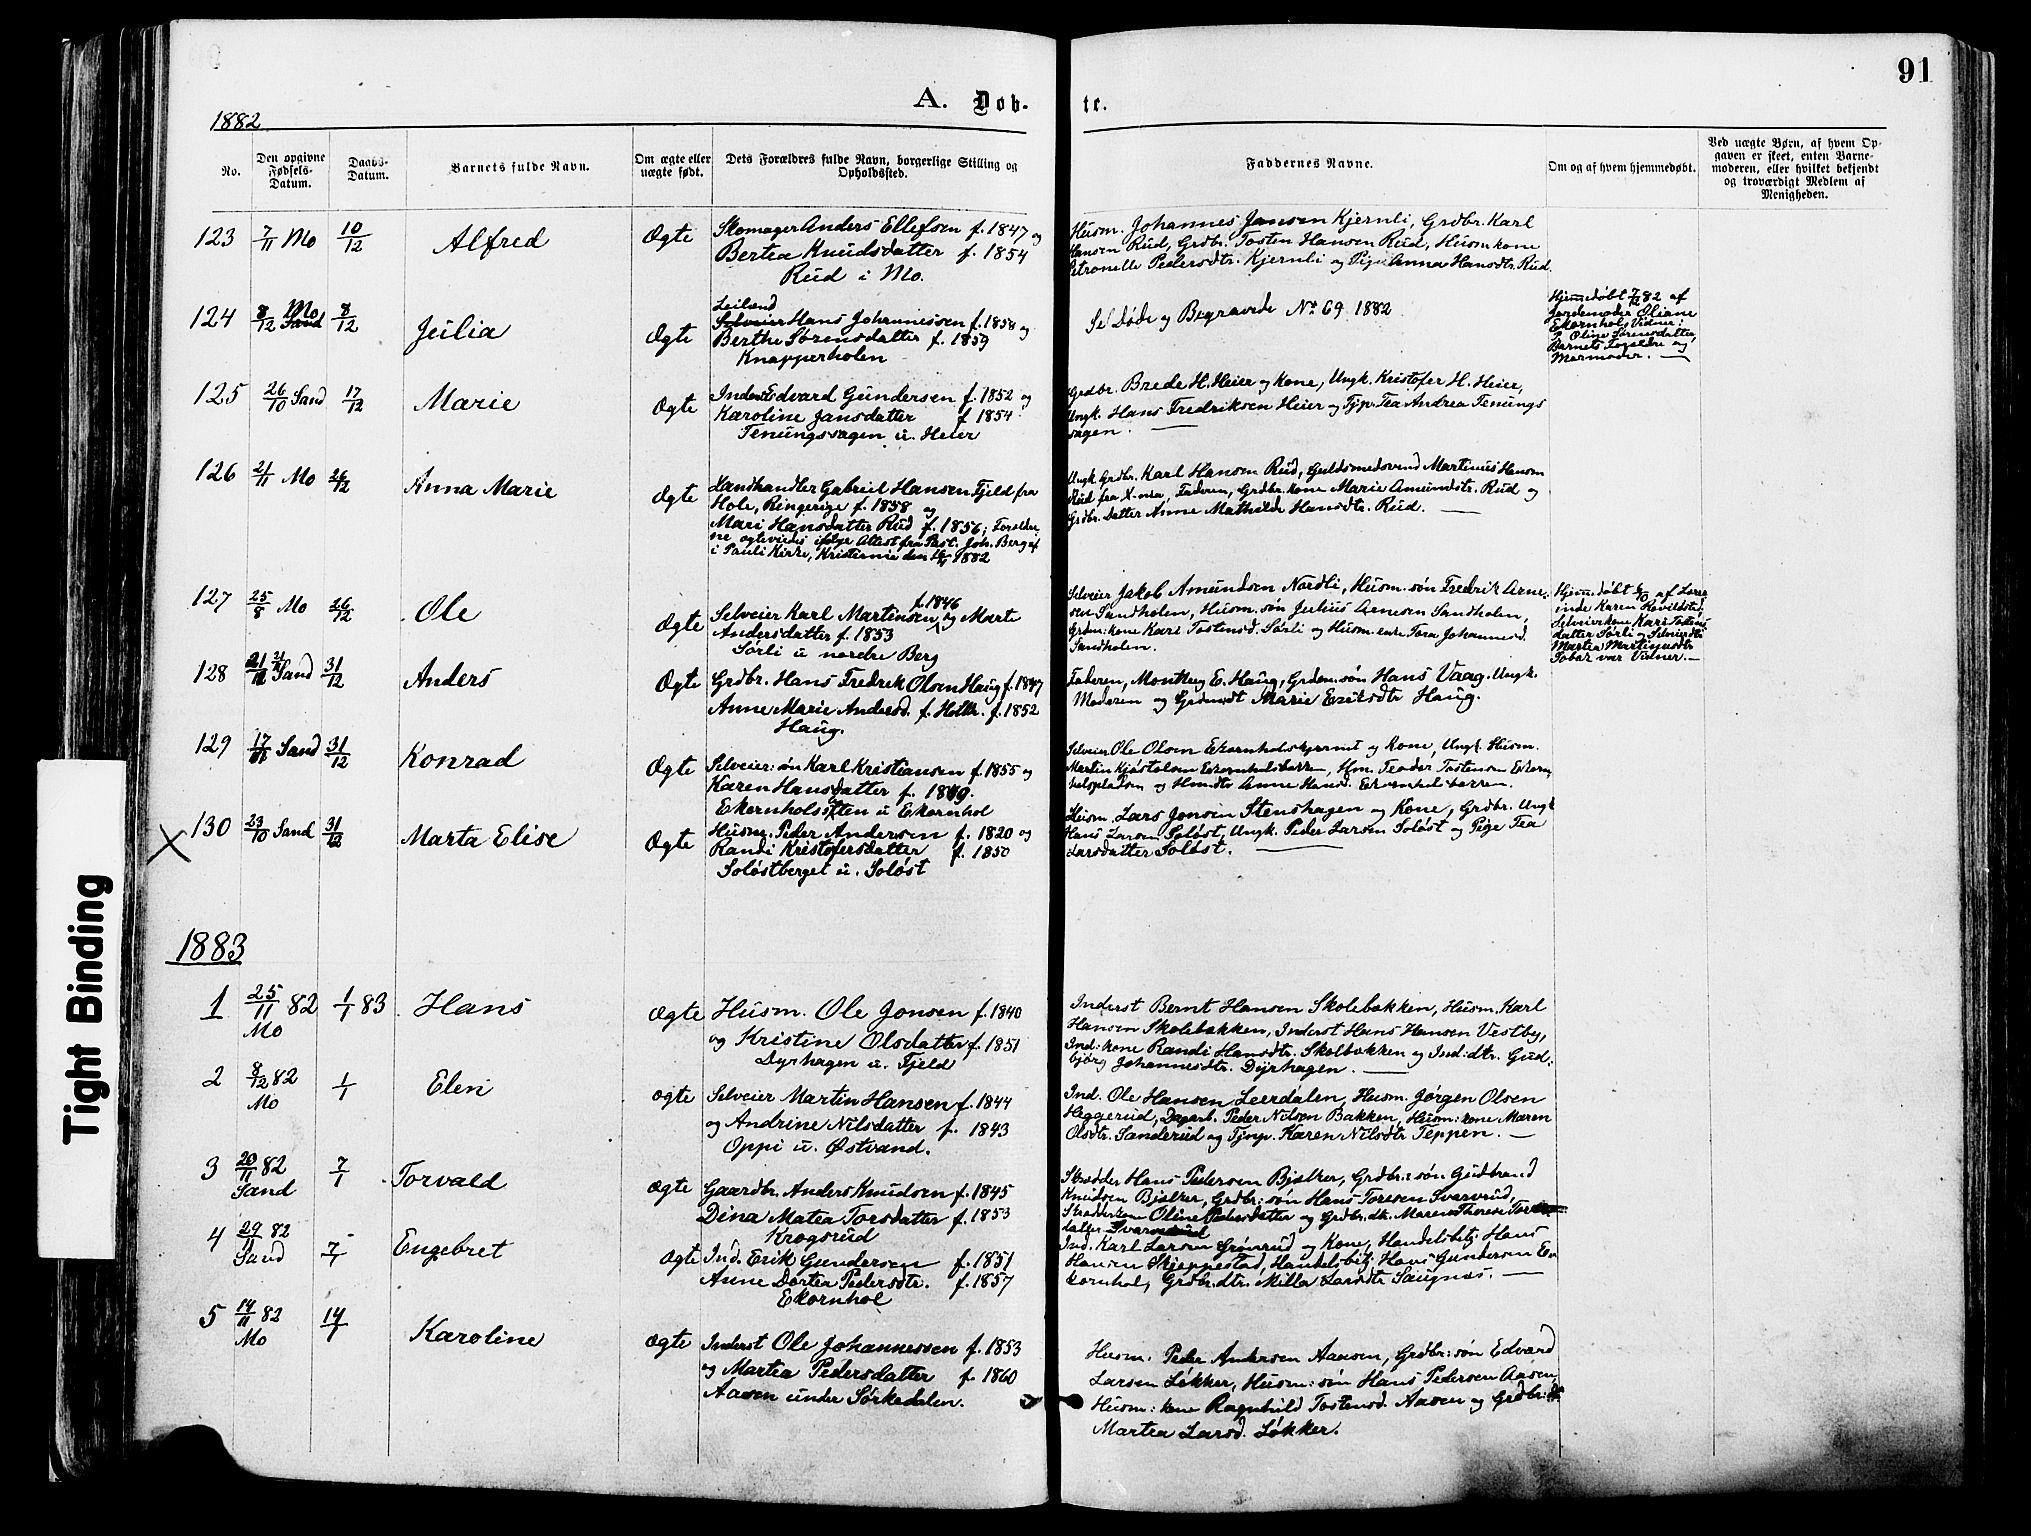 91
A. Døb-
te.
1882
No.
Den opgivne Fødsels-Datum.
Daabs-Datum.
Barnets fulde Navn.
Om ægte eller uægte født.
Dets Forældres fulde Navn, borgerlige Stilling og Opholdssted.
Faddernes Navne.
Om og af hvem hjemmedøbt.
Ved uægte Børn, af hvem Op-
gaven er skeet, enten Barne-
moderen, eller hvilket bekjendt
og troværdigt Medlem af
Menigheden.
123 7/11 Mo 10/12 Alfred Ægte
Skomager Anders Ellefsen f. 1847 og
Bertea Knudsdatter f. 1854
Rud i Mo.
Husm. Johannes Jansen Kjernli, Grdbr. Karl
Hansen Rud, Grdbr. Tosten Hansen Rud, Husm. kone
Petronelle Pedersdtr. Kjernli og Pige Anna Hansdtr. Rud.
124 8/12 Mo Sand 8/12 Julia Ægte
Leilænd
Selveier Hans Johannessen f. 1858 og
Berthe Sørensdatter f. 1859
Knapperholen
Se Døde og Begravede No 69 1882
Hjemmedøbt 7/12 82 af
Jordemoder Oliane
Ekornhol. Vidner:
P. Oline Sørensdatter,
Barnets Forældre og
Mormoder. —
125 26/10 Sand 17/12 Marie Ægte
Inderst Edvard Gundersen f. 1852 og
Karoline Jansdatter f. 1854
Tenungssagen u. Heier
Grdbr. Brede H. Heier og Kone, Ungk. Kristofer H. Heier,
Ungk. Hans Fredriksen Heier og Tjp. Tea Andrea Tenungs
sagen. —
126 21/11 Mo 26/12 Anna Marie Ægte
Landhandler Gabriel Hansen Fjeld fra
Hole, Ringerige f. 1858 og
Mari Hansdatter Rud f. 1856; Foreldre
ne ægteviedes ifølge Attest fra Past. Joh. Berg af
i Pauli Kirke, Kristiania den 1882
Ungk. Grdbr. Karl Hansen Rud, Guldsmedsvend Martinius Hansen
Rud fra X-nia, Faderen, Grdbr. kone Marie Amundstr. Rud og
Grdbr. Datter Anne Mathilde Hansdtr. Rud. —
127 25/8 Mo 26/12 Ole Ægte
f. 1846
Selveier Karl Martinsen og Marte
Andersdatter f. 1853
Sørli u nordre Berg
Selveier Jakob Amundsen Nordli, Husm. søn Fredrik Arne-
sen Sandholen, Husm. søn Julius Arnesen Sandholen,
Grdm: kone Kari Tostensd. Sørli og Husm. enke Tora Johannesd.
Sandholen.
Hjemmedøbt 6/10 af Lærer
inde Karen Ravildstad
Selveierkone Kari Tostens
datter Sørli og Selveierdtr
Martea Martinusdtr
Tobar var Vidner. —
128 21/11 Sand 31/12 Anders Ægte
Grdbr. Hans Fredrek Olsen Haug f. 1847
Anne Marie Andersd. f. Holtr. f. 1852
Haug.
Faderen, Montberg E. Haug, Grdm: søn Hans Vaag. Ungk.
Moderen og Grdmdt Marie Eriksdtr Haug.
129 17/11 Sand 31/12 Konrad Ægte
Selveier: søn Karl Kristiansen f. 1855 og
Karen Hansdatter f. 1849.
Ekornholsæten u Ekornhol
Selveier Ole Olsen Ekornholskjernet og Kone, Ungk. Husm.
Martin Kjøstolsen Ekornholsbakken, Hm. Teodor Tostensen Ekorn
holspladsen og Hmdtr Anne Hansd. Ekornholsbakken.
130 23/10 Sand 31/12 Marta Elise Ægte
Husm. Peder Andersen f. 1820 og
Randi Kristofersdatter f. 1850
Soløstberget u. Soløst
Husm. Lars Jonsen Stenshagen og Kone, Grdbr. Ungk
Hans Larsen Soløst, Ungk. Peder Larsen Soløst og Pige Tea
Larsdatter Soløst. —
1883
1 25/11 82 Mo 1/1 83 Hans Ægte
Husm. Ole Jonsen f. 1840
og Kristine Olsdatter f. 1851
Dyrhagen u. Fjeld
Inderst Bernt Hansen Skolebakken, Husm. Karl
Hansen Skolebakken, Inderst Hans Hansen Vestby,
Ind: kone Randi Hansdtr. Skolbakken og Ind: dtr. Gud:
bjørg Johannesdtr. Dyrhagen. —
2 8/12 82 Mo 1/1 Elen Ægte
Selveier Martin Hansen f. 1844
og Andrine Nilsdatter f. 1843
Oppi u. Østvand.
Ind. Ole Hansen Leerdalen, Husm. Jørgen Olsen
Heggerud, Dagarb. Peder Nilsen Bakken, Husm: kone Maren
Olsdtr. Sanderud og Tjnp. Karen Nilsdtr Teppen. —
3 20/11 82 Sand 7/1 Torvald Ægte
Gaardbr. Anders Knudsen f. 1845
Dina Matea Torsdatter f. 1853
Krogsrud
Skrædder Hans Pedersen Bjølker, Grdbr: søn Gudbrand
Knudsen Bjølker, Grdbr: søn Hans Toresen Svarverud,
Skrædderkone Oline Pedersdatter og Grdbr. dtr. Maren Therese Tores
datter Svarverud
4 29/11 82 Sand 7/1 Engebret Ægte
Ind. Erik Gundersen f. 1851
Anne Dortea Pedersdtr. f. 1857
Ekornhol
Ind. Karl Larsen Grønrud og Kone, Handelsbetj. Hans
Hansen Skjeppestad, Handelsbetj. Hans Gundersen E
kornhol, Grdbr. dtr. Milla Larsdtr Saugnæs. —
5 14/11 82 Mo 14/1 Karoline Ægte
Inderst Ole Johannessen f. 1853
og Martia Pedersdatter f. 1860
Aasen under Sørkedalen.
Husm. Peder Andersen Aansen, Grdbr: søn Edvard
Larsen Løkker, Husm: søn Hans Pedersen Aasen,
Husm: kone Ragnhild Tostensd. Aasen og Grdbr: dt
Martea Larsd. Løkker.
Tight Binding